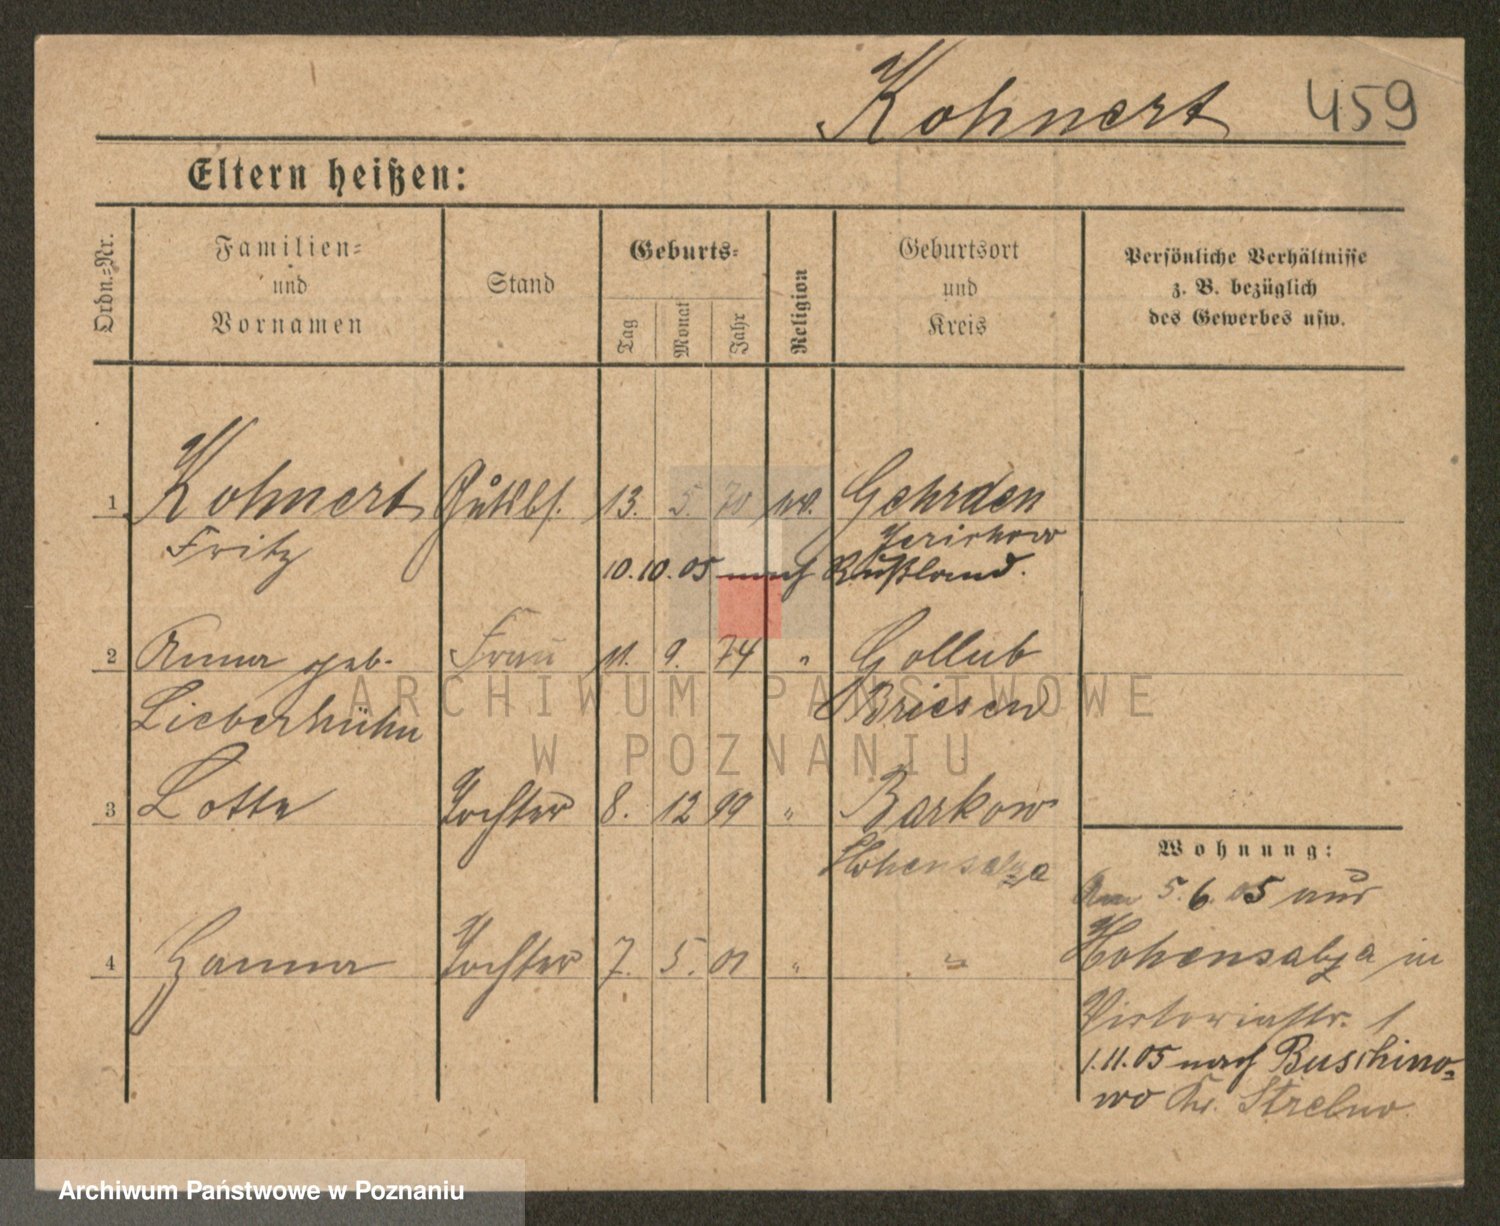 Kohnert 459
Eltern heißen:
Ordn.-Nr.
Familien- und Vornamen
Stand
Geburts-
Tag
Monat
Jahr
Religion
Geburtsort und Kreis
Persönliche Verhältnisse z. B. bezüglich des Gewerbes usw.
1 Kohnert Gutsbs. 13. 5. 70 ev. Gehrden
Fritz Jerichow
10.10.05 nach Rußland.
2 Anna geb. Frau 11. 9. 74 " Gollub
Lieberkühn Briesen
3 Lotte Tochter 8. 12 99 " Barkow
Hohensalza
4 Hanna Tochter 7. 5. 01 " "
Wohnung:
Am 5.6.05 aus
Hohensalza in
Victoriastr. 1
1.11.05 nach Buschino=
wo Kr. Strelno.
ARCHIWUM PAŃSTWOWE
W POZNANIU
Archiwum Państwowe w Poznaniu